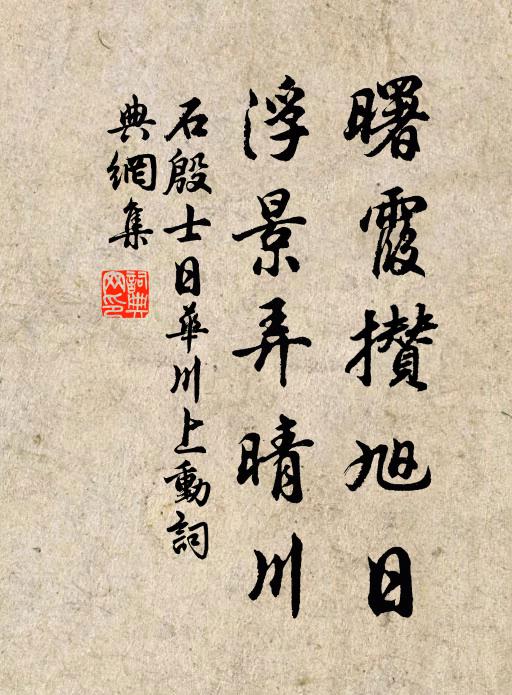 曙霞攢旭日
浮景弄晴川
石殷士日華川上動詞
典網集
詞典
网印